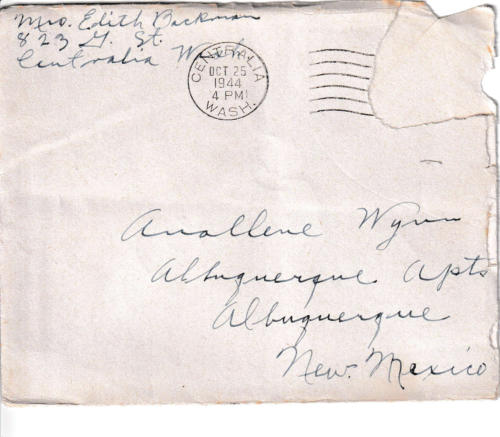 Mrs. Edith Backman
823 G. St.
Centralia Wash
CENTRALIA
OCT 25
1944
4 PM
WASH.
Anollene Wynn
Albuquerque Apts
Albuquerque
New. Mexico